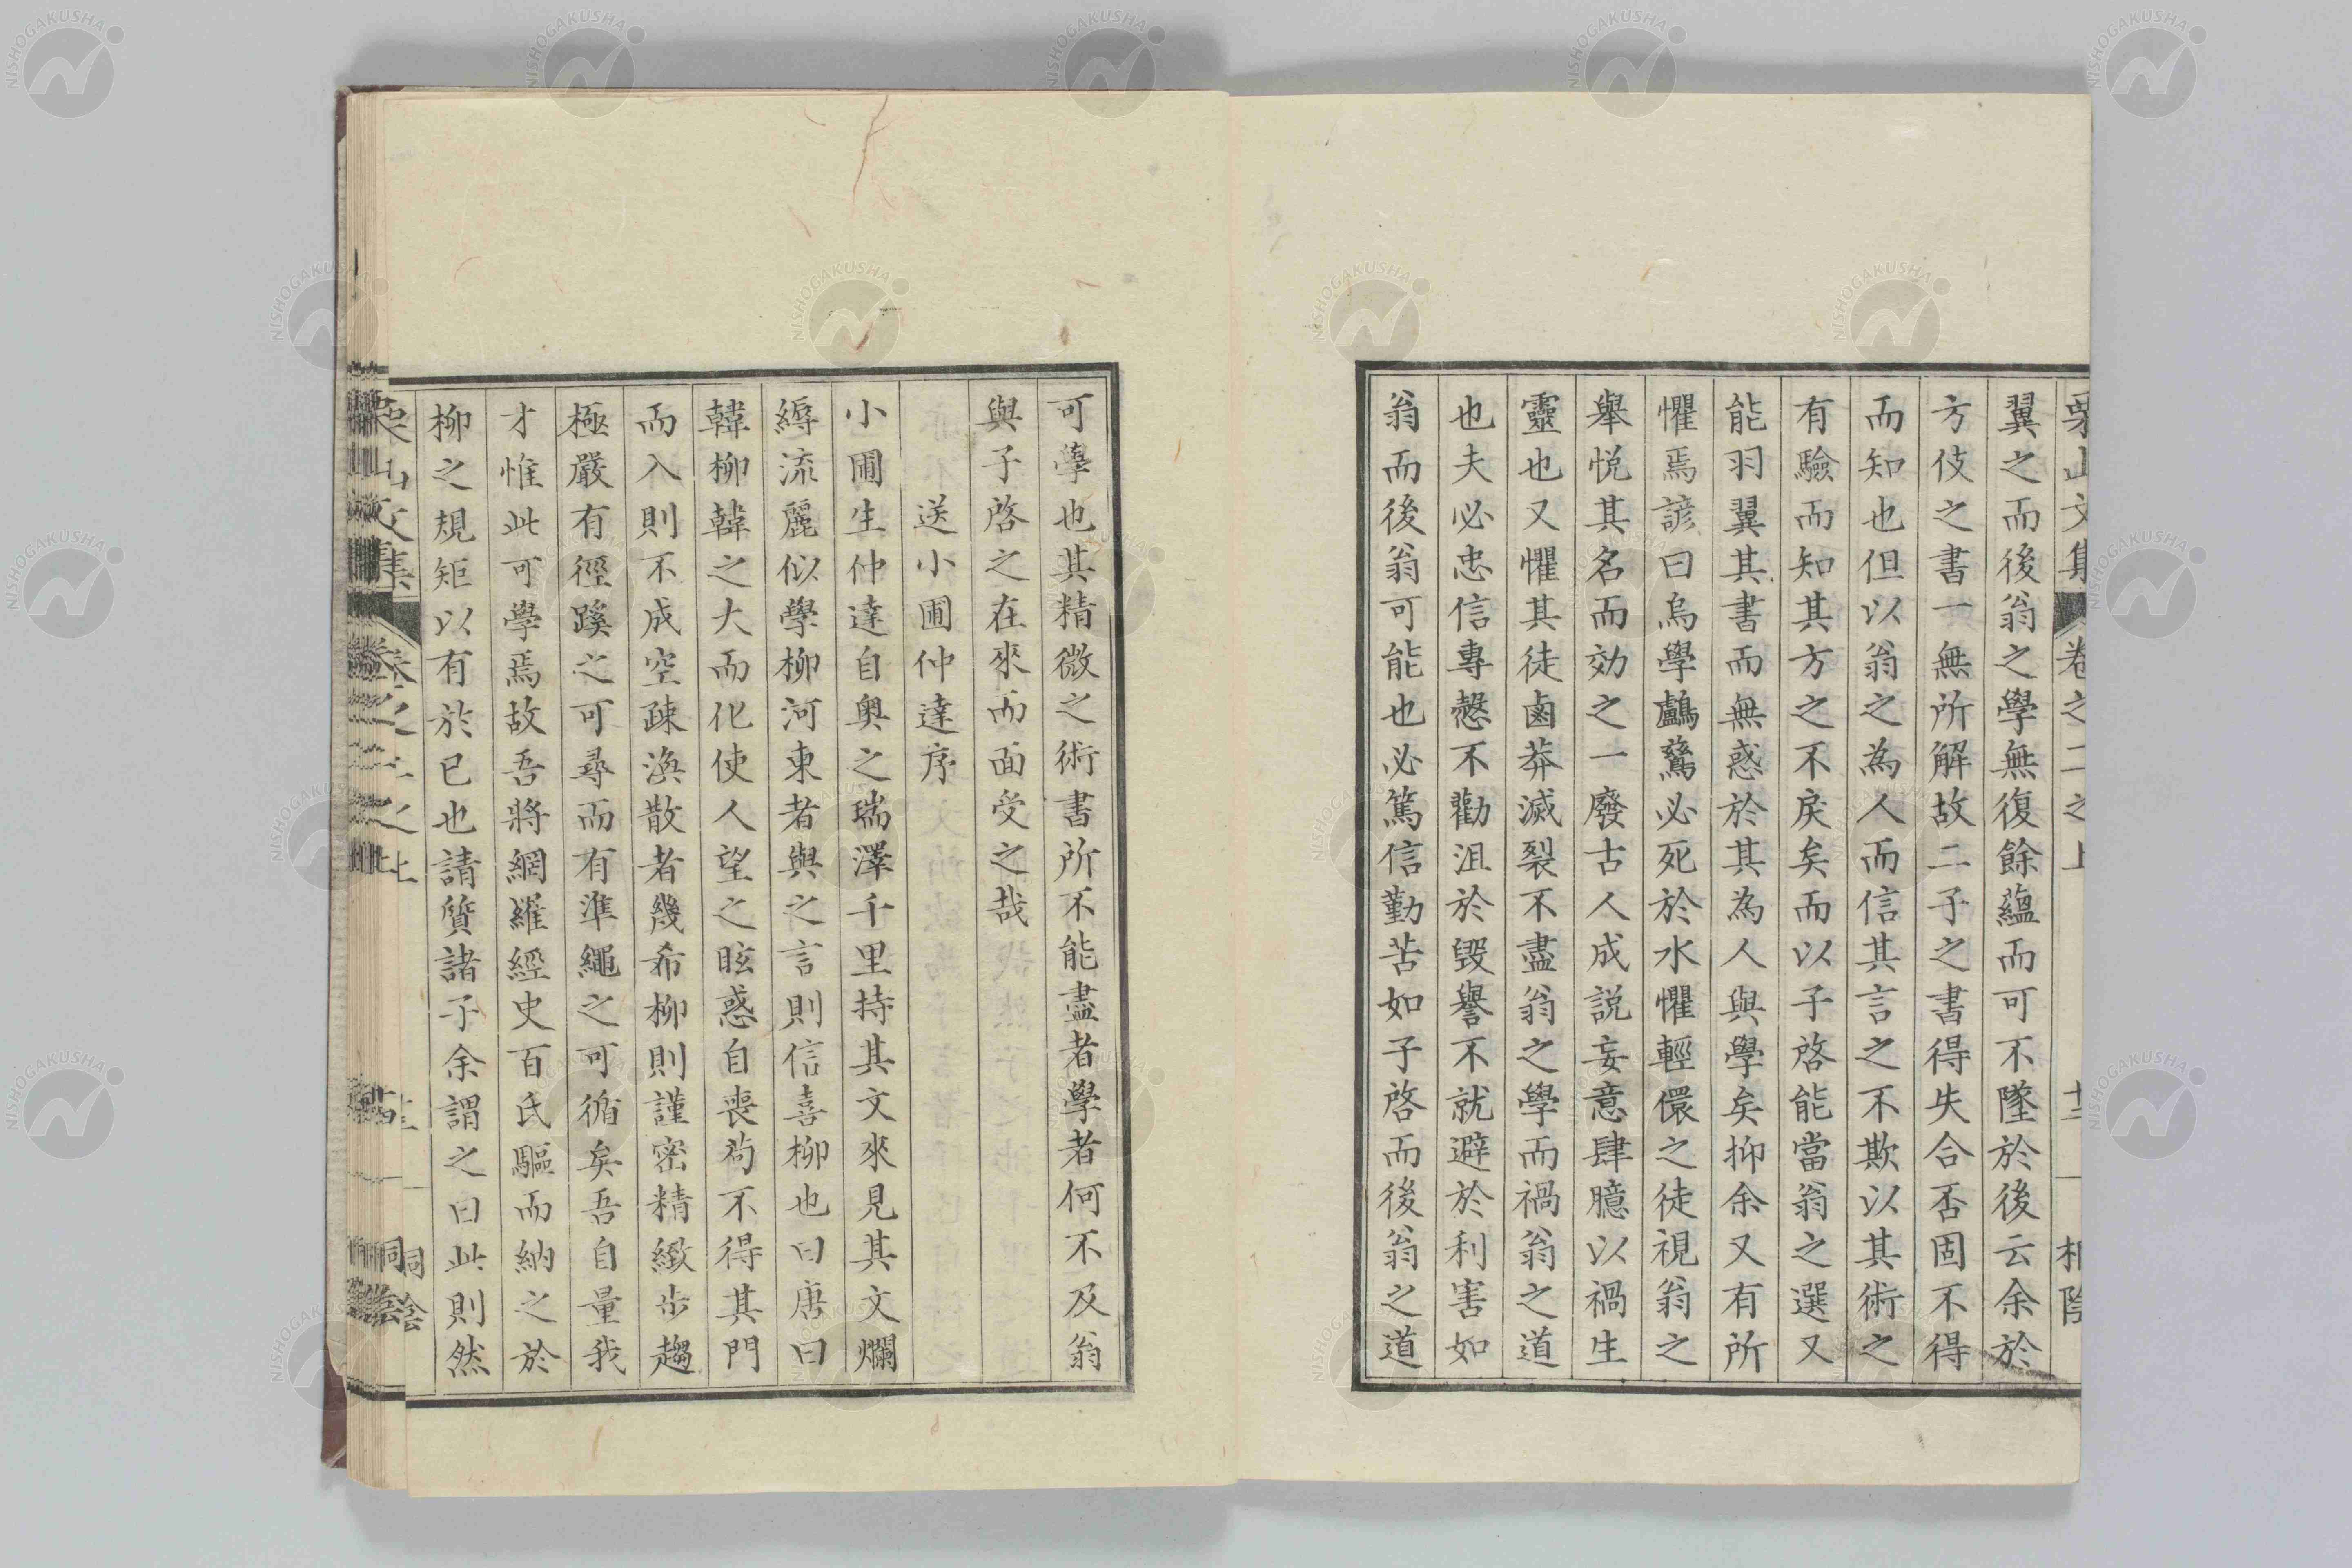 栗山文集 卷之二之上 十二 栢陰
翼之而後翁之學無復餘蘊而可不墜於後云余於
方伎之書一無所解故二子之書得失合否固不得
而知也但以翁之為人而信其言之不欺以其術之
有驗而知其方之不戾矣而以子啓能當翁之選又
能羽翼其書而無惑於其為人與學矣抑余又有所
懼焉諺曰烏學鸕鶿必死於水懼輕儇之徒視翁之
舉悦其名而効之一廢古人成説妄意肆臆以禍生
靈也又懼其徒鹵莽滅裂不盡翁之學而禍翁之道
也夫必忠信專慤不勸沮於毀譽不就避於利害如
翁而後翁可能也必篤信勤苦如子啓而後翁之道
可學也其精微之術書所不能盡者學者何不及翁
與子啓之在來而面受之哉
送小圃仲達序
小圃生仲達自奥之瑞澤千里持其文來見其文爛
縟流麗似學柳河東者與之言則信喜柳也曰唐曰
韓柳韓之大而化使人望之眩惑自喪苟不得其門
而入則不成空疎渙散者幾希柳則謹密精緻步趨
極嚴有徑蹊之可尋而有準繩之可循矣吾自量我
才惟此可學焉故吾將網羅經史百氏驅而納之於
柳之規矩以有於已也請質諸子余謂之曰此則然